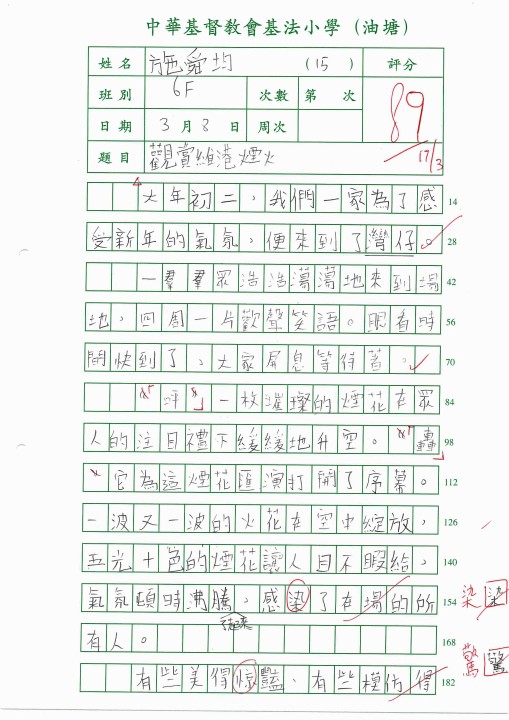 中華基督教會基法小學（油塘）
姓名 施舜均 (15) 評分
班別 6F 次數 第 次 89
日期 3月8日 周次 17/3
題目 觀賞維港煙火
大年初二，我們一家為了感 14
受新年的氣氛，便來到了灣仔。 28
一羣羣眾浩浩蕩蕩地來到場 42
地，四周一片歡聲笑語。眼看時 56
間快到了，大家屏息等待著。 70
「呯」一枚璀璨的煙花在眾 84
人的注目禮下緩緩地升空。「轟」 98
它為這煙花匯演打開了序幕。 112
一波又一波的火花在空中綻放， 126
五光十色的煙花讓人目不暇給， 140
氣氛頓時沸騰，感染了在場的所 154 染 染
有人。 168
有些美得驚豔，有些模仿得 182 驚 驚